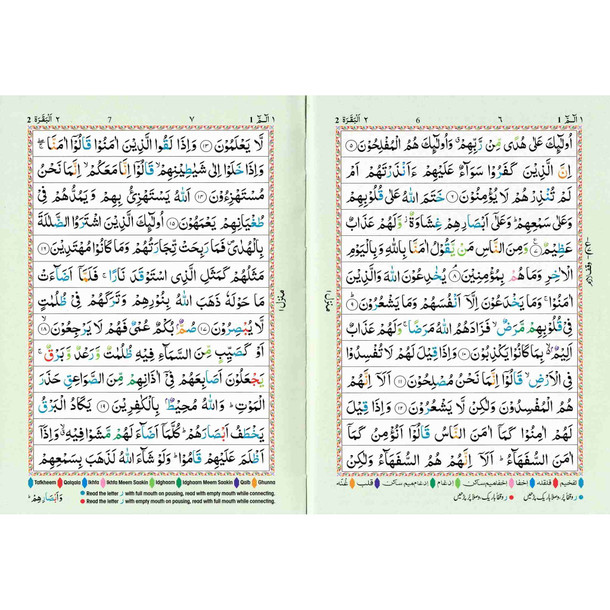 ١ الٓمّٓ 1
6 ٦
٢ اَلْبَقَرَة 2
اُولٰٓئِكَ عَلٰى هُدًى مِّنْ رَّبِّهِمْ وَاُولٰٓئِكَ هُمُ الْمُفْلِحُوْنَ ﴿٥﴾
اِنَّ الَّذِيْنَ كَفَرُوْا سَوَآءٌ عَلَيْهِمْ ءَاَنْذَرْتَهُمْ اَمْ
لَمْ تُنْذِرْهُمْ لَا يُؤْمِنُوْنَ ﴿٦﴾ خَتَمَ اللّٰهُ عَلٰى قُلُوْبِهِمْ
وَعَلٰى سَمْعِهِمْ ؕ وَعَلٰٓى اَبْصَارِهِمْ غِشَاوَةٌ وَّلَهُمْ عَذَابٌ
عَظِيْمٌ ﴿٧﴾ وَمِنَ النَّاسِ مَنْ يَّقُوْلُ اٰمَنَّا بِاللّٰهِ وَبِالْيَوْمِ
الْاٰخِرِ وَمَا هُمْ بِمُؤْمِنِيْنَ ﴿٨﴾ يُخٰدِعُوْنَ اللّٰهَ وَالَّذِيْنَ
اٰمَنُوْا ۚ وَمَا يَخْدَعُوْنَ اِلَّآ اَنْفُسَهُمْ وَمَا يَشْعُرُوْنَ ﴿٩﴾
فِيْ قُلُوْبِهِمْ مَّرَضٌ ۙ فَزَادَهُمُ اللّٰهُ مَرَضًا ۚ وَلَهُمْ عَذَابٌ
اَلِيْمٌۢ بِمَا كَانُوْا يَكْذِبُوْنَ ﴿١٠﴾ وَاِذَا قِيْلَ لَهُمْ لَا تُفْسِدُوْا
فِى الْاَرْضِ ۙ قَالُوْٓا اِنَّمَا نَحْنُ مُصْلِحُوْنَ ﴿١١﴾ اَلَآ اِنَّهُمْ
هُمُ الْمُفْسِدُوْنَ وَلٰكِنْ لَّا يَشْعُرُوْنَ ﴿١٢﴾ وَاِذَا قِيْلَ
لَهُمْ اٰمِنُوْا كَمَآ اٰمَنَ النَّاسُ قَالُوْٓا اَنُؤْمِنُ كَمَآ
اٰمَنَ السُّفَهَآءُ ؕ اَلَآ اِنَّهُمْ هُمُ السُّفَهَآءُ وَلٰكِنْ
تفخیم قلقلہ اخفا اخفا میم ساکن ادغام ادغام میم ساکن قلب غُنّہ
١ الٓمّٓ 1
7 ٧
٢ اَلْبَقَرَة 2
لَّا يَعْلَمُوْنَ ﴿١٣﴾ وَاِذَا لَقُوا الَّذِيْنَ اٰمَنُوْا قَالُوْٓا اٰمَنَّا ۖۚ
وَاِذَا خَلَوْا اِلٰى شَيٰطِيْنِهِمْ ۙ قَالُوْٓا اِنَّا مَعَكُمْ ۙ اِنَّمَا نَحْنُ
مُسْتَهْزِءُوْنَ ﴿١٤﴾ اَللّٰهُ يَسْتَهْزِئُ بِهِمْ وَيَمُدُّهُمْ فِيْ
طُغْيَانِهِمْ يَعْمَهُوْنَ ﴿١٥﴾ اُولٰٓئِكَ الَّذِيْنَ اشْتَرَوُا الضَّلٰلَةَ
بِالْهُدٰى ۪ فَمَا رَبِحَتْ تِّجَارَتُهُمْ وَمَا كَانُوْا مُهْتَدِيْنَ ﴿١٦﴾
مَثَلُهُمْ كَمَثَلِ الَّذِى اسْتَوْقَدَ نَارًا ۚ فَلَمَّآ اَضَآءَتْ
مَا حَوْلَهٗ ذَهَبَ اللّٰهُ بِنُوْرِهِمْ وَتَرَكَهُمْ فِيْ ظُلُمٰتٍ
لَّا يُبْصِرُوْنَ ﴿١٧﴾ صُمٌّۢ بُكْمٌ عُمْيٌ فَهُمْ لَا يَرْجِعُوْنَ ﴿١٨﴾
اَوْ كَصَيِّبٍ مِّنَ السَّمَآءِ فِيْهِ ظُلُمٰتٌ وَّرَعْدٌ وَّبَرْقٌ ۚ
يَجْعَلُوْنَ اَصَابِعَهُمْ فِيْٓ اٰذَانِهِمْ مِّنَ الصَّوَاعِقِ حَذَرَ
الْمَوْتِ ؕ وَاللّٰهُ مُحِيْطٌۢ بِالْكٰفِرِيْنَ ﴿١٩﴾ يَكَادُ الْبَرْقُ
يَخْطَفُ اَبْصَارَهُمْ ؕ كُلَّمَآ اَضَآءَ لَهُمْ مَّشَوْا فِيْهِ ۙ وَاِذَآ
اَظْلَمَ عَلَيْهِمْ قَامُوْا ؕ وَلَوْ شَآءَ اللّٰهُ لَذَهَبَ بِسَمْعِهِمْ
وَاَبْصَارِهِمْ ؕ
Tafkheem Qalqala Ikhfa Ikhfa Meem Saakin Idghaam Idghaam Meem Saakin Qalb Ghunna
Read the letter ر with full mouth on pausing, read with empty mouth while connecting.
Read the letter ر with empty mouth on pausing, read with full mouth while connecting.